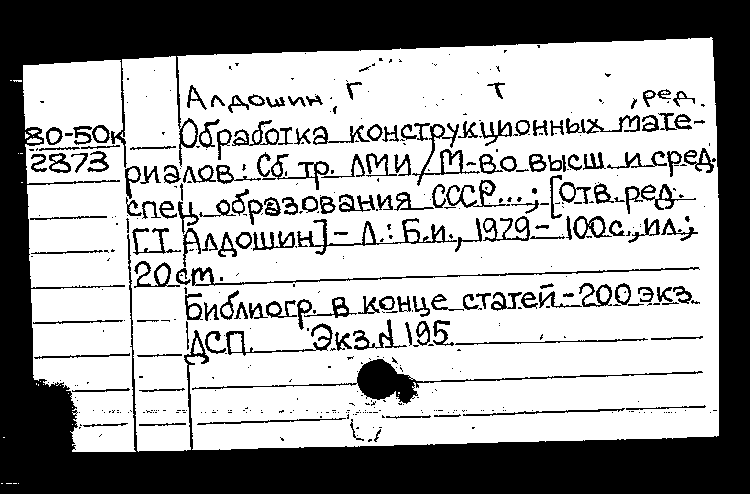 Алдошин, Г Т , ред.
80-50к
2873
Обработка конструкционных мате-
риалов: Сб. тр. ЛМИ/М-во высш. и сред.
спец. образования СССР...; [Отв. ред.
Г.Т. Алдошин] - Л.: Б.и., 1979. - 100с., ил.;
20 ст.
Библиогр. в конце статей. - 200 экз.
ДСП. Экз. N 195.